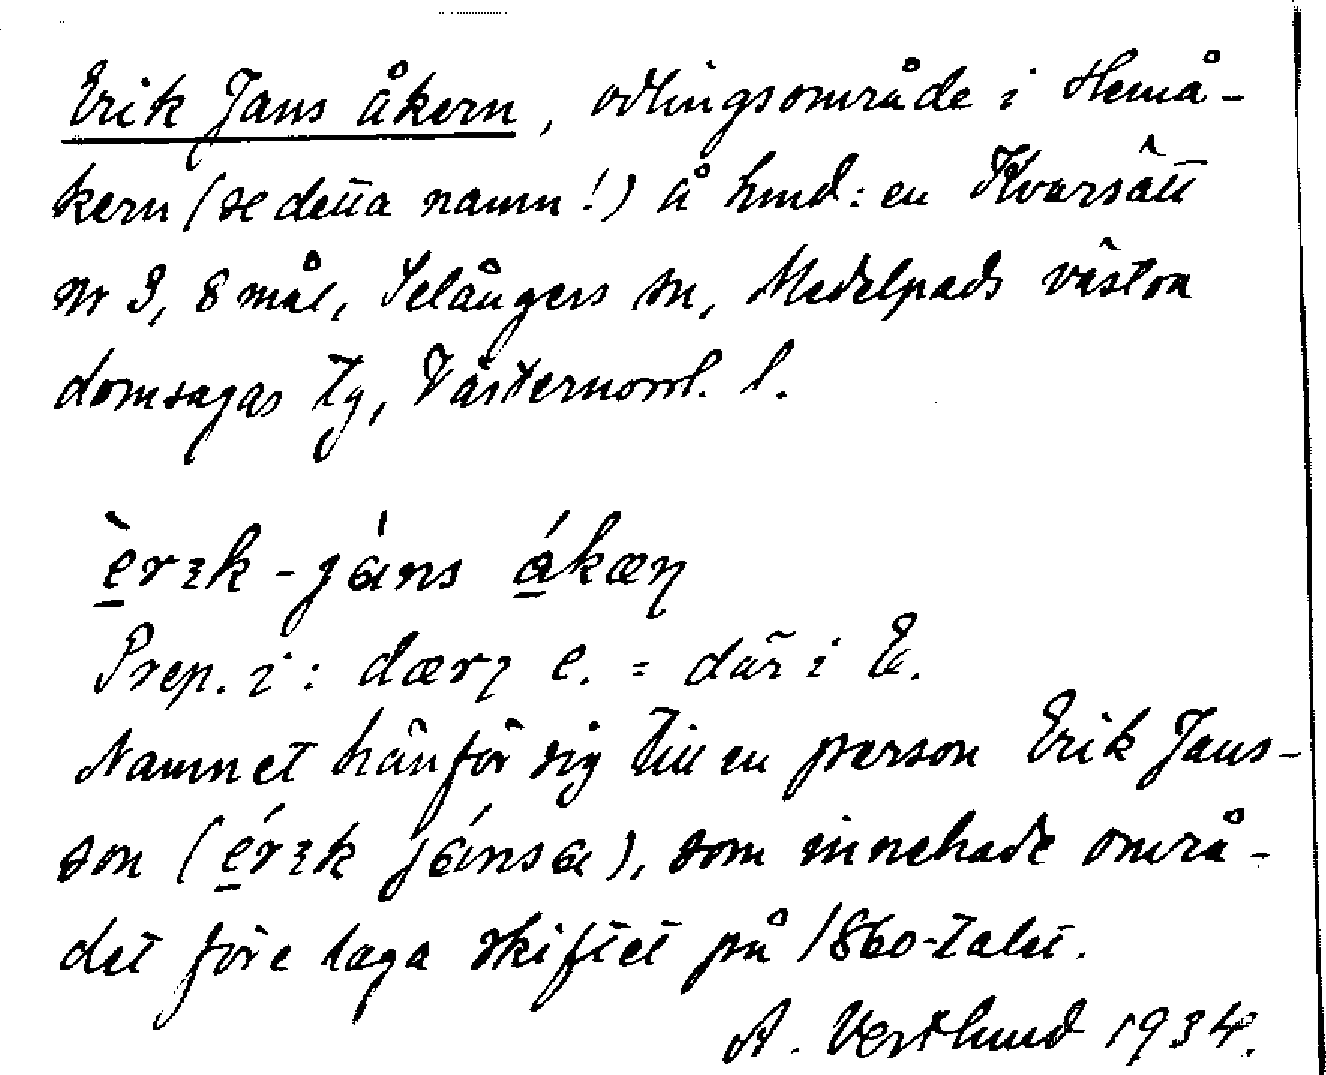 Erik Jans åkern, odlingsområde i Hemå-
kern (se detta namn!) å hmd: en Kvarsätt
nr 3, 8 mål, Selångers sn, Medelpads västra
domsagas tg, Västernorrl. l.
èrɩk-jáns ákæɳ
Prep. i: dærɩ e. = där i E.
Namnet hänför sig till en person Erik Jans-
son (érɩk jánsa), som innehade områ-
det före laga skiftet på 1860-talet.
A. Vestlund 1934.